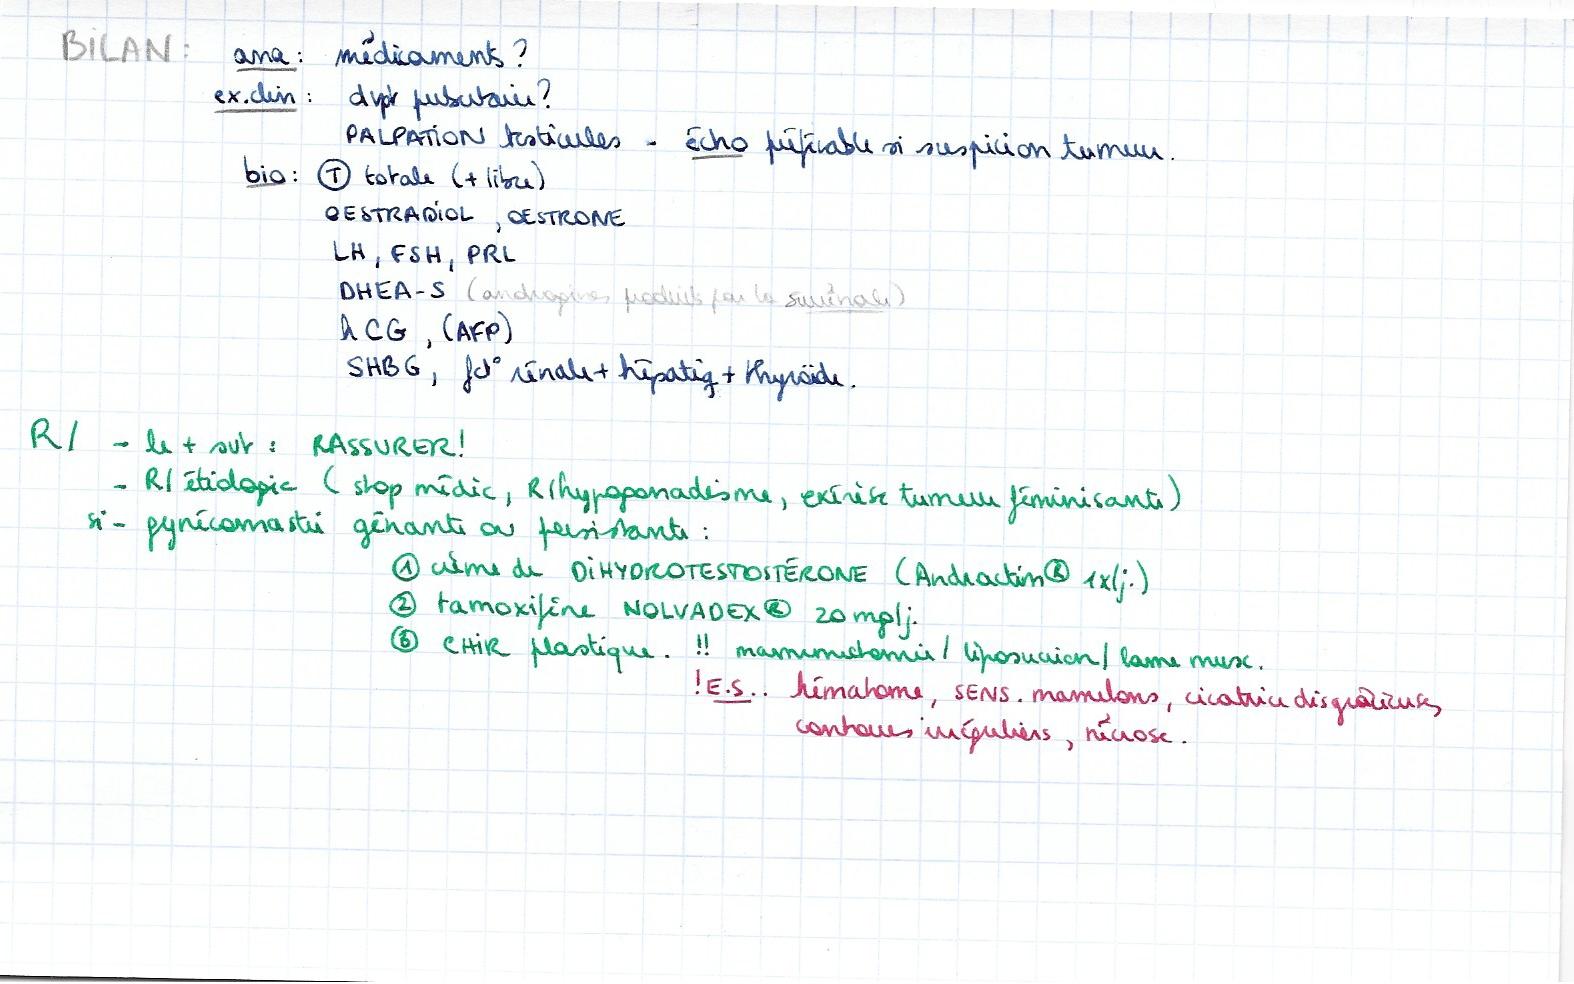 BILAN: ana: médicaments?
ex.clin: dvpt pubertaire?
PALPATION testicules - écho préférable si suspicion tumeur.
bio: Ⓣ totale (+ libre)
OESTRADIOL, OESTRONE
LH, FSH, PRL
DHEA-S (androgènes produits par la surrénale)
hCG, (AFP)
SHBG, fct° rénale + hépatiq + thyroïde.
R/ - le + svt : RASSURER!
- R/ étiologie (stop médic, R/hypogonadisme, exérèse tumeur féminisante)
si - gynécomastie gênante ou persistante :
① crème de DIHYDROTESTOSTÉRONE (Andractim® 1x/j.)
② tamoxifène NOLVADEX® 20 mg/j.
③ CHIR plastique. !! mammectomie / liposuccion / lame musc.
! E.S.. hématome, SENS. mamelons, cicatrice disgracieuse,
contours irréguliers, nécrose.